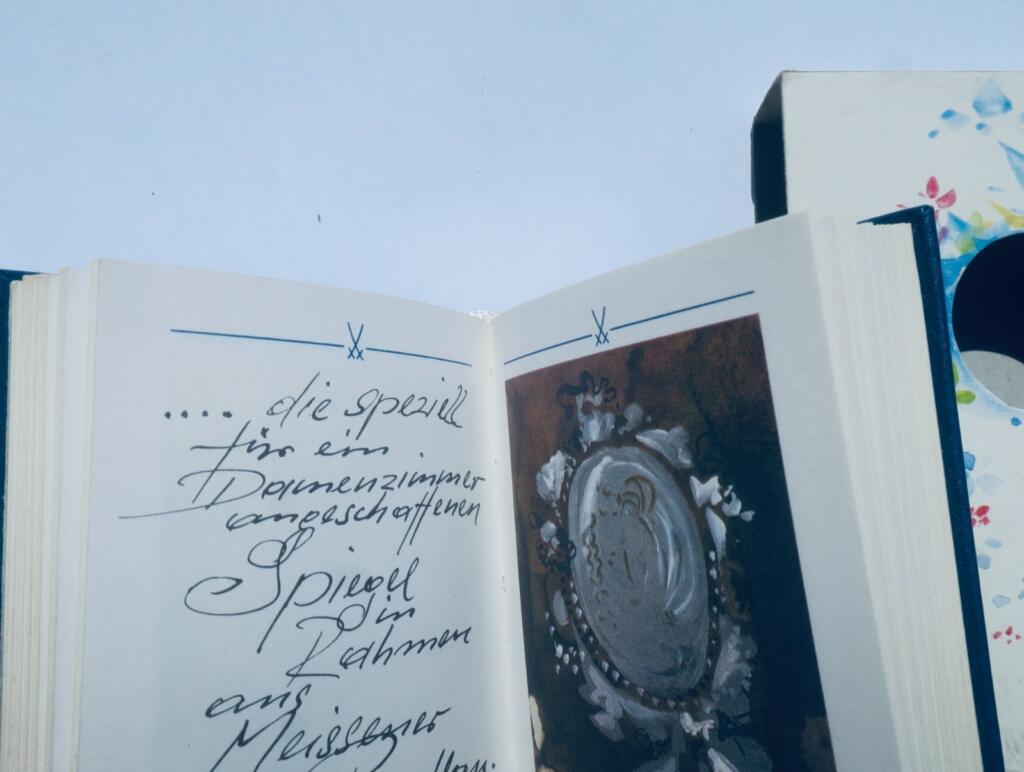 .... die speziell
für ein
Damenzimmer
angeschaffenen
Spiegel
din
Rahmen
aus
Meissener